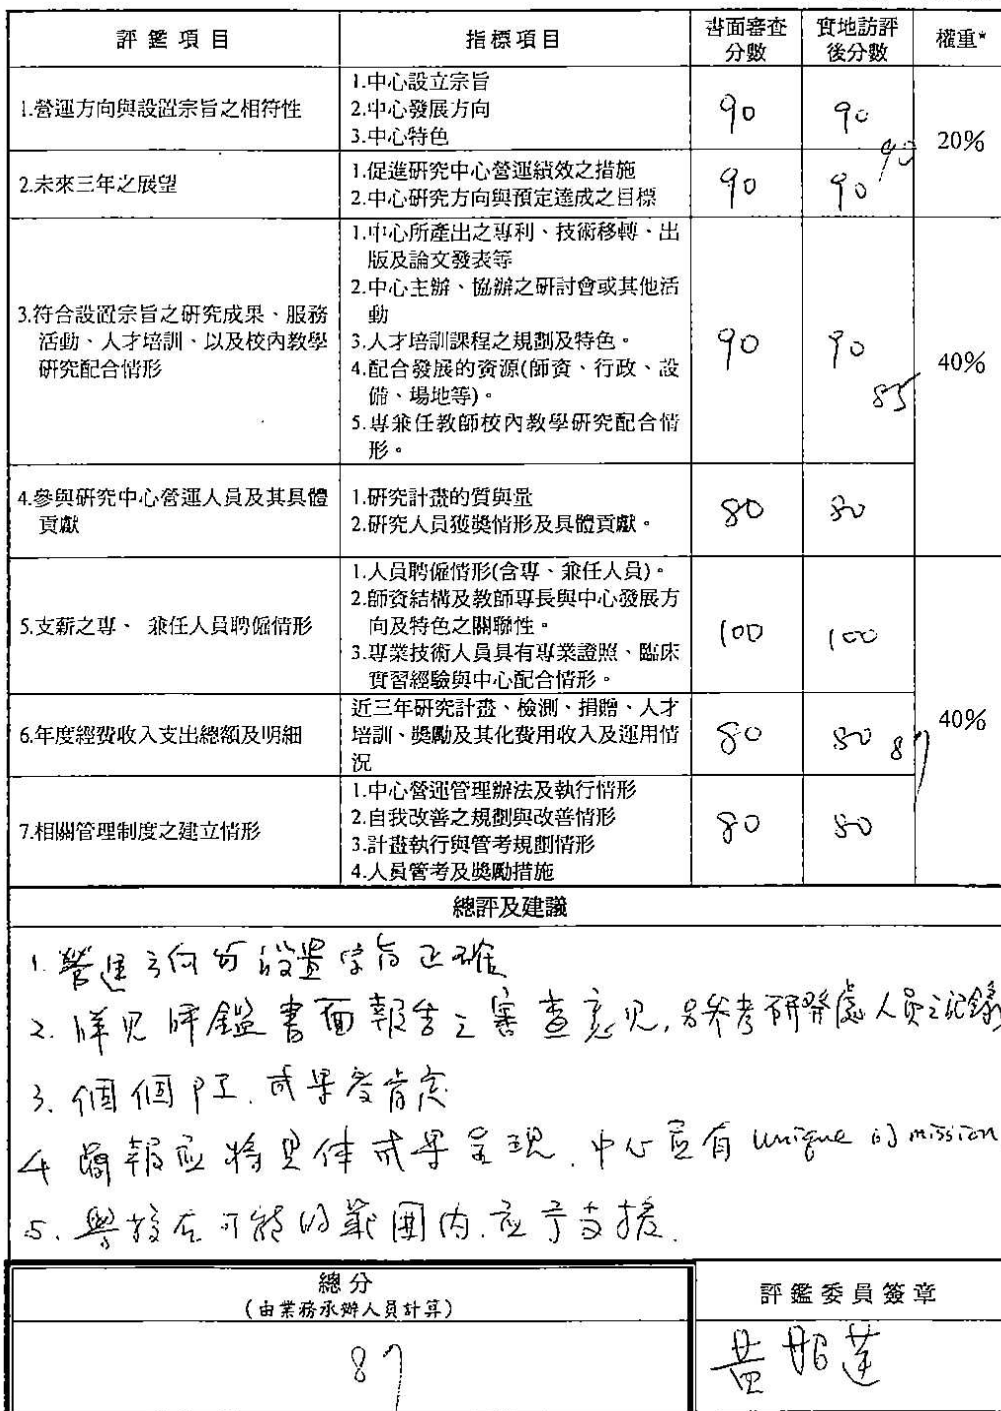 評鑑項目 指標項目 書面審查分數 實地訪評後分數 權重*
1.營運方向與設置宗旨之相符性
1.中心設立宗旨
2.中心發展方向
3.中心特色
90 90
20%
90
2.未來三年之展望
1.促進研究中心營運績效之措施
2.中心研究方向與預定達成之目標
90 90
3.符合設置宗旨之研究成果、服務
活動、人才培訓、以及校內教學
研究配合情形
1.中心所產出之專利、技術移轉、出
版及論文發表等
2.中心主辦、協辦之研討會或其他活
動
3.人才培訓課程之規劃及特色。
4.配合發展的資源(師資、行政、設
備、場地等)。
5.專兼任教師校內教學研究配合情
形。
90 90
40%
85
4.參與研究中心營運人員及其具體
貢獻
1.研究計畫的質與量
2.研究人員獲獎情形及具體貢獻。
80 80
5.支薪之專、 兼任人員聘僱情形
1.人員聘僱情形(含專、兼任人員)。
2.師資結構及教師專長與中心發展方
向及特色之關聯性。
3.專業技術人員具有專業證照、臨床
實習經驗與中心配合情形。
100 100
6.年度經費收入支出總額及明細
近三年研究計畫、檢測、捐贈、人才
培訓、獎勵及其化費用收入及運用情
況
80 80
87
40%
7.相關管理制度之建立情形
1.中心營運管理辦法及執行情形
2.自我改善之規劃與改善情形
3.計畫執行與管考規劃情形
4.人員管考及獎勵措施
80 80
總評及建議
1. 營運方向與設置宗旨正確
2. 詳見評鑑書面報告之審查意見,另參考研發處人員之記錄
3. 個個 成果受肯定
4 簡報應將具体成果呈現. 中心應有 unique 的 mission
5. 學校在可能的範圍內.應予支援.
總分
(由業務承辦人員計算)
評鑑委員簽章
87
黃